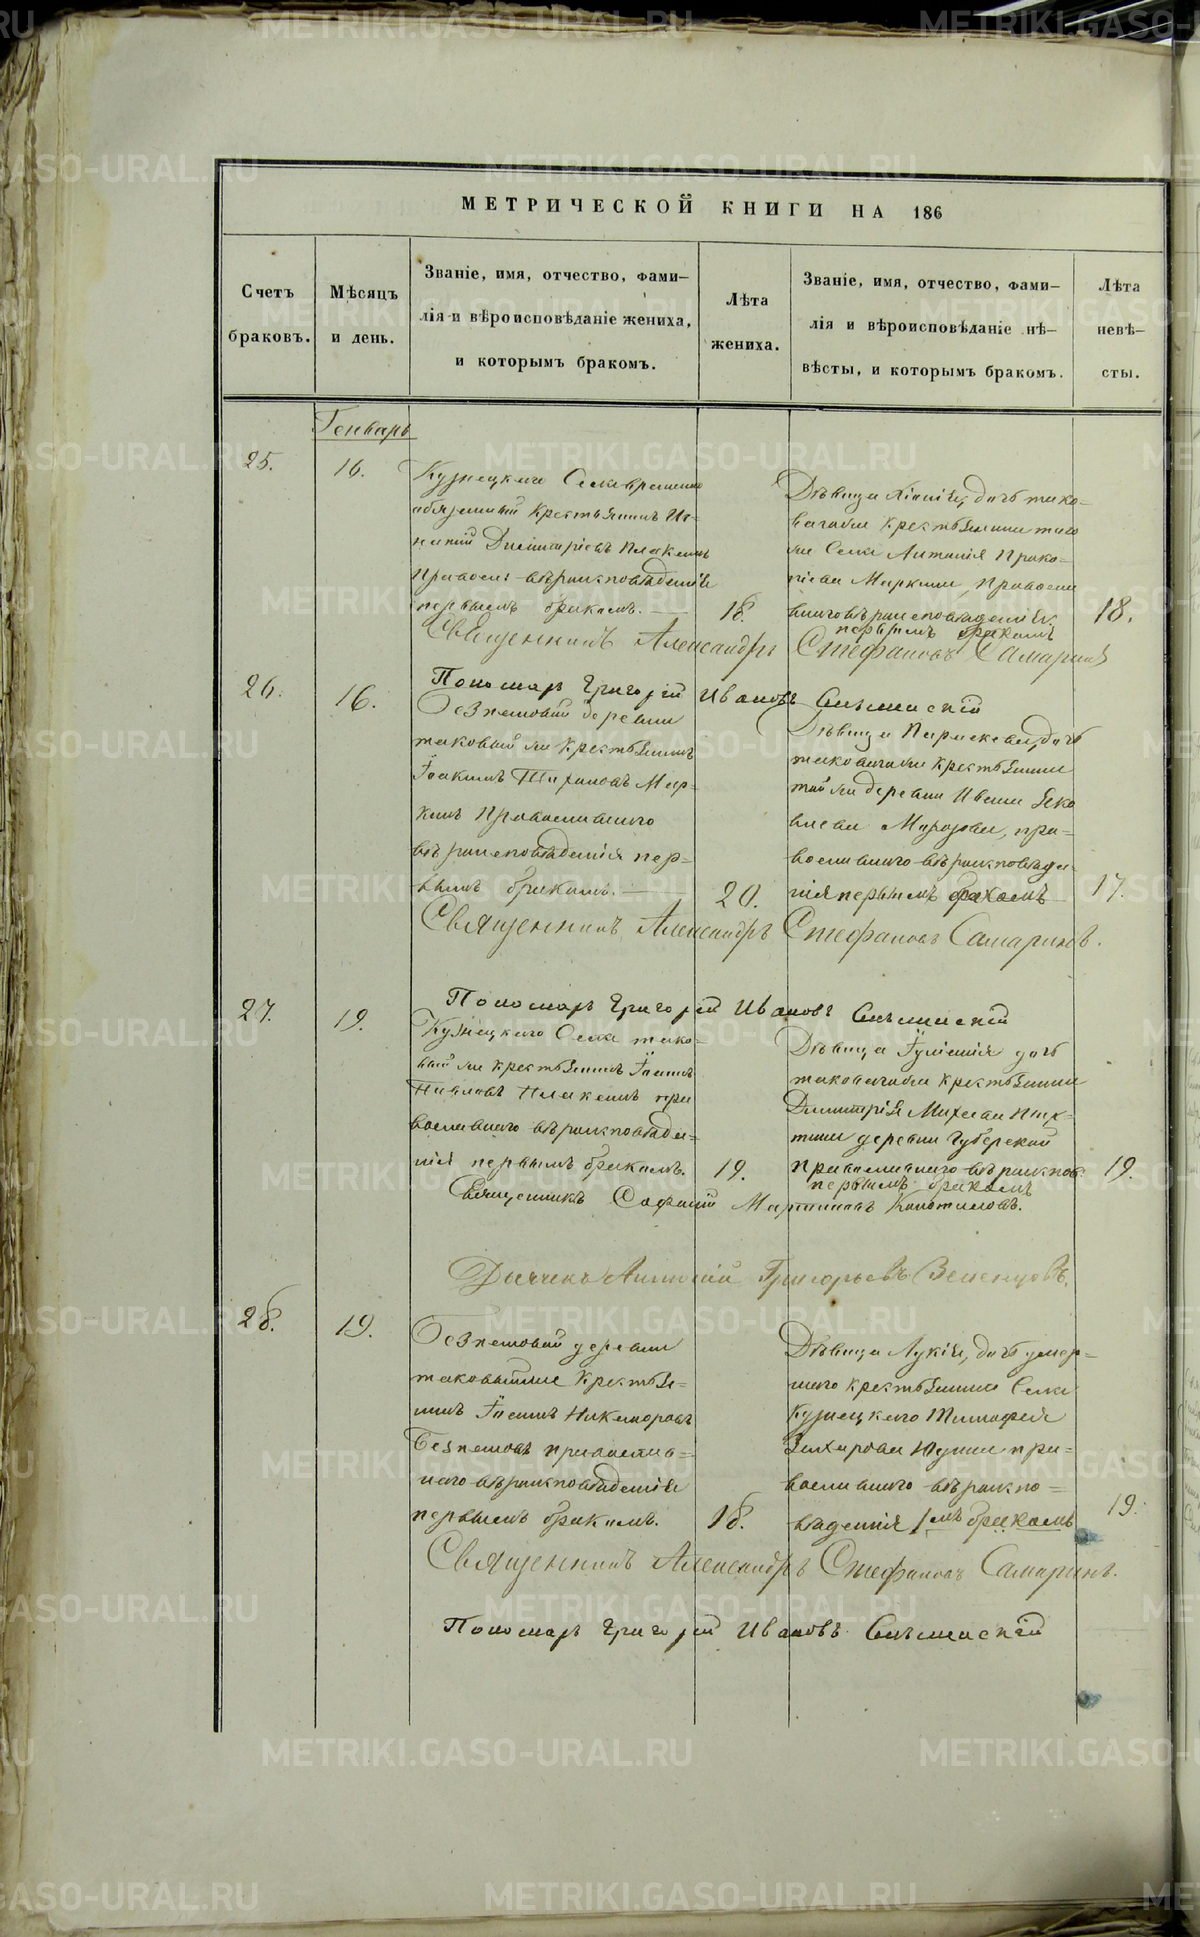 МЕТРИЧЕСКОЙ КНИГИ НА 186
Счетъ браковъ.
Мѣсяцъ и день.
Званіе, имя, отчество, фами-
лія и вѣроисповѣданіе жениха,
и которымъ бракомъ.
Лѣта жениха.
Званіе, имя, отчество, фами-
лія и вѣроисповѣданіе нѣ-
вѣсты, и которымъ бракомъ.
Лѣта невѣ-
сты.
Генварь
25.
16.
Кузнецкаго Села временно
обязанный крестьянинъ Иг-
натій Димитріевъ
Православ вѣроисповѣданія
первымъ бракомъ.
18.
Дѣвица Ксенія, дочь тако-
ваго же крестьянина того
же Села Антонія Проко-
піева Маркина, Православ
наго вѣроисповѣданія
первымъ бракомъ
18.
Священникъ Александръ Стефановъ Самаринъ
Пономарь Григорій Ивановъ
26.
16.
Безпаловой деревни
таковый же крестьянинъ
Іоакимъ Тихоновъ Мар-
кинъ Православнаго
вѣроисповѣданія пер-
вымъ бракомъ.
20.
Дѣвица Параскева, дочь
таковаго же крестьянина
той же деревни Ивана Яко
влева Морозова, пра-
вославнаго вѣроисповѣда-
нія первымъ бракомъ
17.
Священникъ Александръ Стефановъ Самаринъ.
Пономарь Григорій Ивановъ
27.
19.
Кузнецкаго Села тако-
вый же крестьянинъ Іоаннъ
Павловъ пра
вославнаго вѣроисповѣда-
нія первымъ бракомъ.
19.
Дѣвица Іуліанія дочь
таковаго же крестьянина
Димитрія Михеева Пах-
тина деревни Губерской
Православнаго вѣроисповѣ.
первымъ бракомъ
19.
Священникъ Мартиновъ
Дьячекъ Григорьевъ
28.
19.
Безпаловой деревни
таковый же крестья-
нинъ Іоаннъ Никаноровъ
Безпаловъ православ-
наго вѣроисповѣданія
первымъ бракомъ.
18.
Дѣвица Лукія, дочь умер-
шаго крестьянина Села
Кузнецкаго Тимофея
Захарова пра-
вославнаго вѣроиспо-
вѣданія 1мъ бракомъ
19.
Священникъ Александръ Стефановъ Самаринъ.
Пономарь Григорій Ивановъ
METRIKI.GASO-URAL.RU